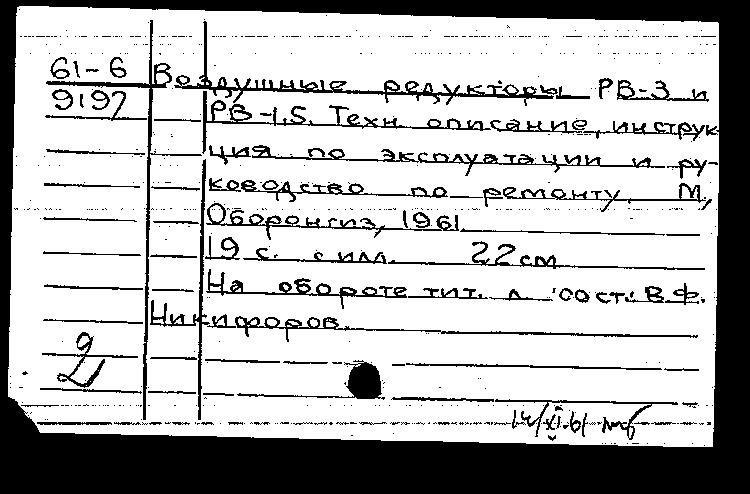 61-6 Воздушные редукторы РВ-3 и
9197 РВ-1,5. Техн. описание, инструк-
ция по эксплуатации и ру-
ководство по ремонту. М,
Оборонгиз, 1961.
19 с. с илл. 22 см
На обороте тит. л. сост.: В.Ф.
Никифоров.
2
14/XI-61